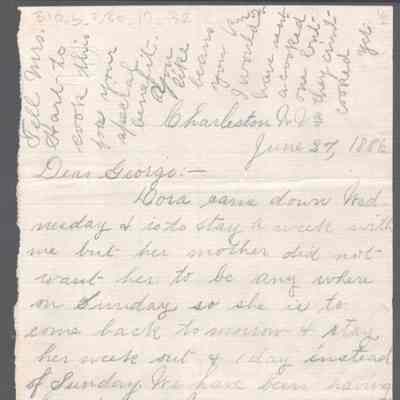 Tell Mrs.
Hart to
cook this
for your
special
benefit.
you
like
beans
you
I would
have sent
a cooked
one but
they aint
cooked
yet.
Charleston
June 27, 1886
Dear George:—
Dora came down Wed
nesday & is to stay a week with
me but her mother did not
want her to be any where
on Sunday so she is to
come back to morrow & stay
her week out & 1 day instead
of Sunday. We have been having